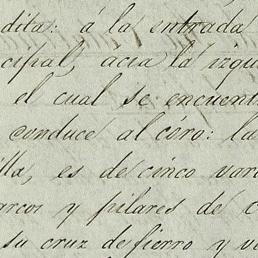 dita: á la entrada
cipal, acia la izqui
el cual se encuentr
conduce al córo: la
illa, es de cinco vara
arcos y pilares de c
su cruz de fierro y ve